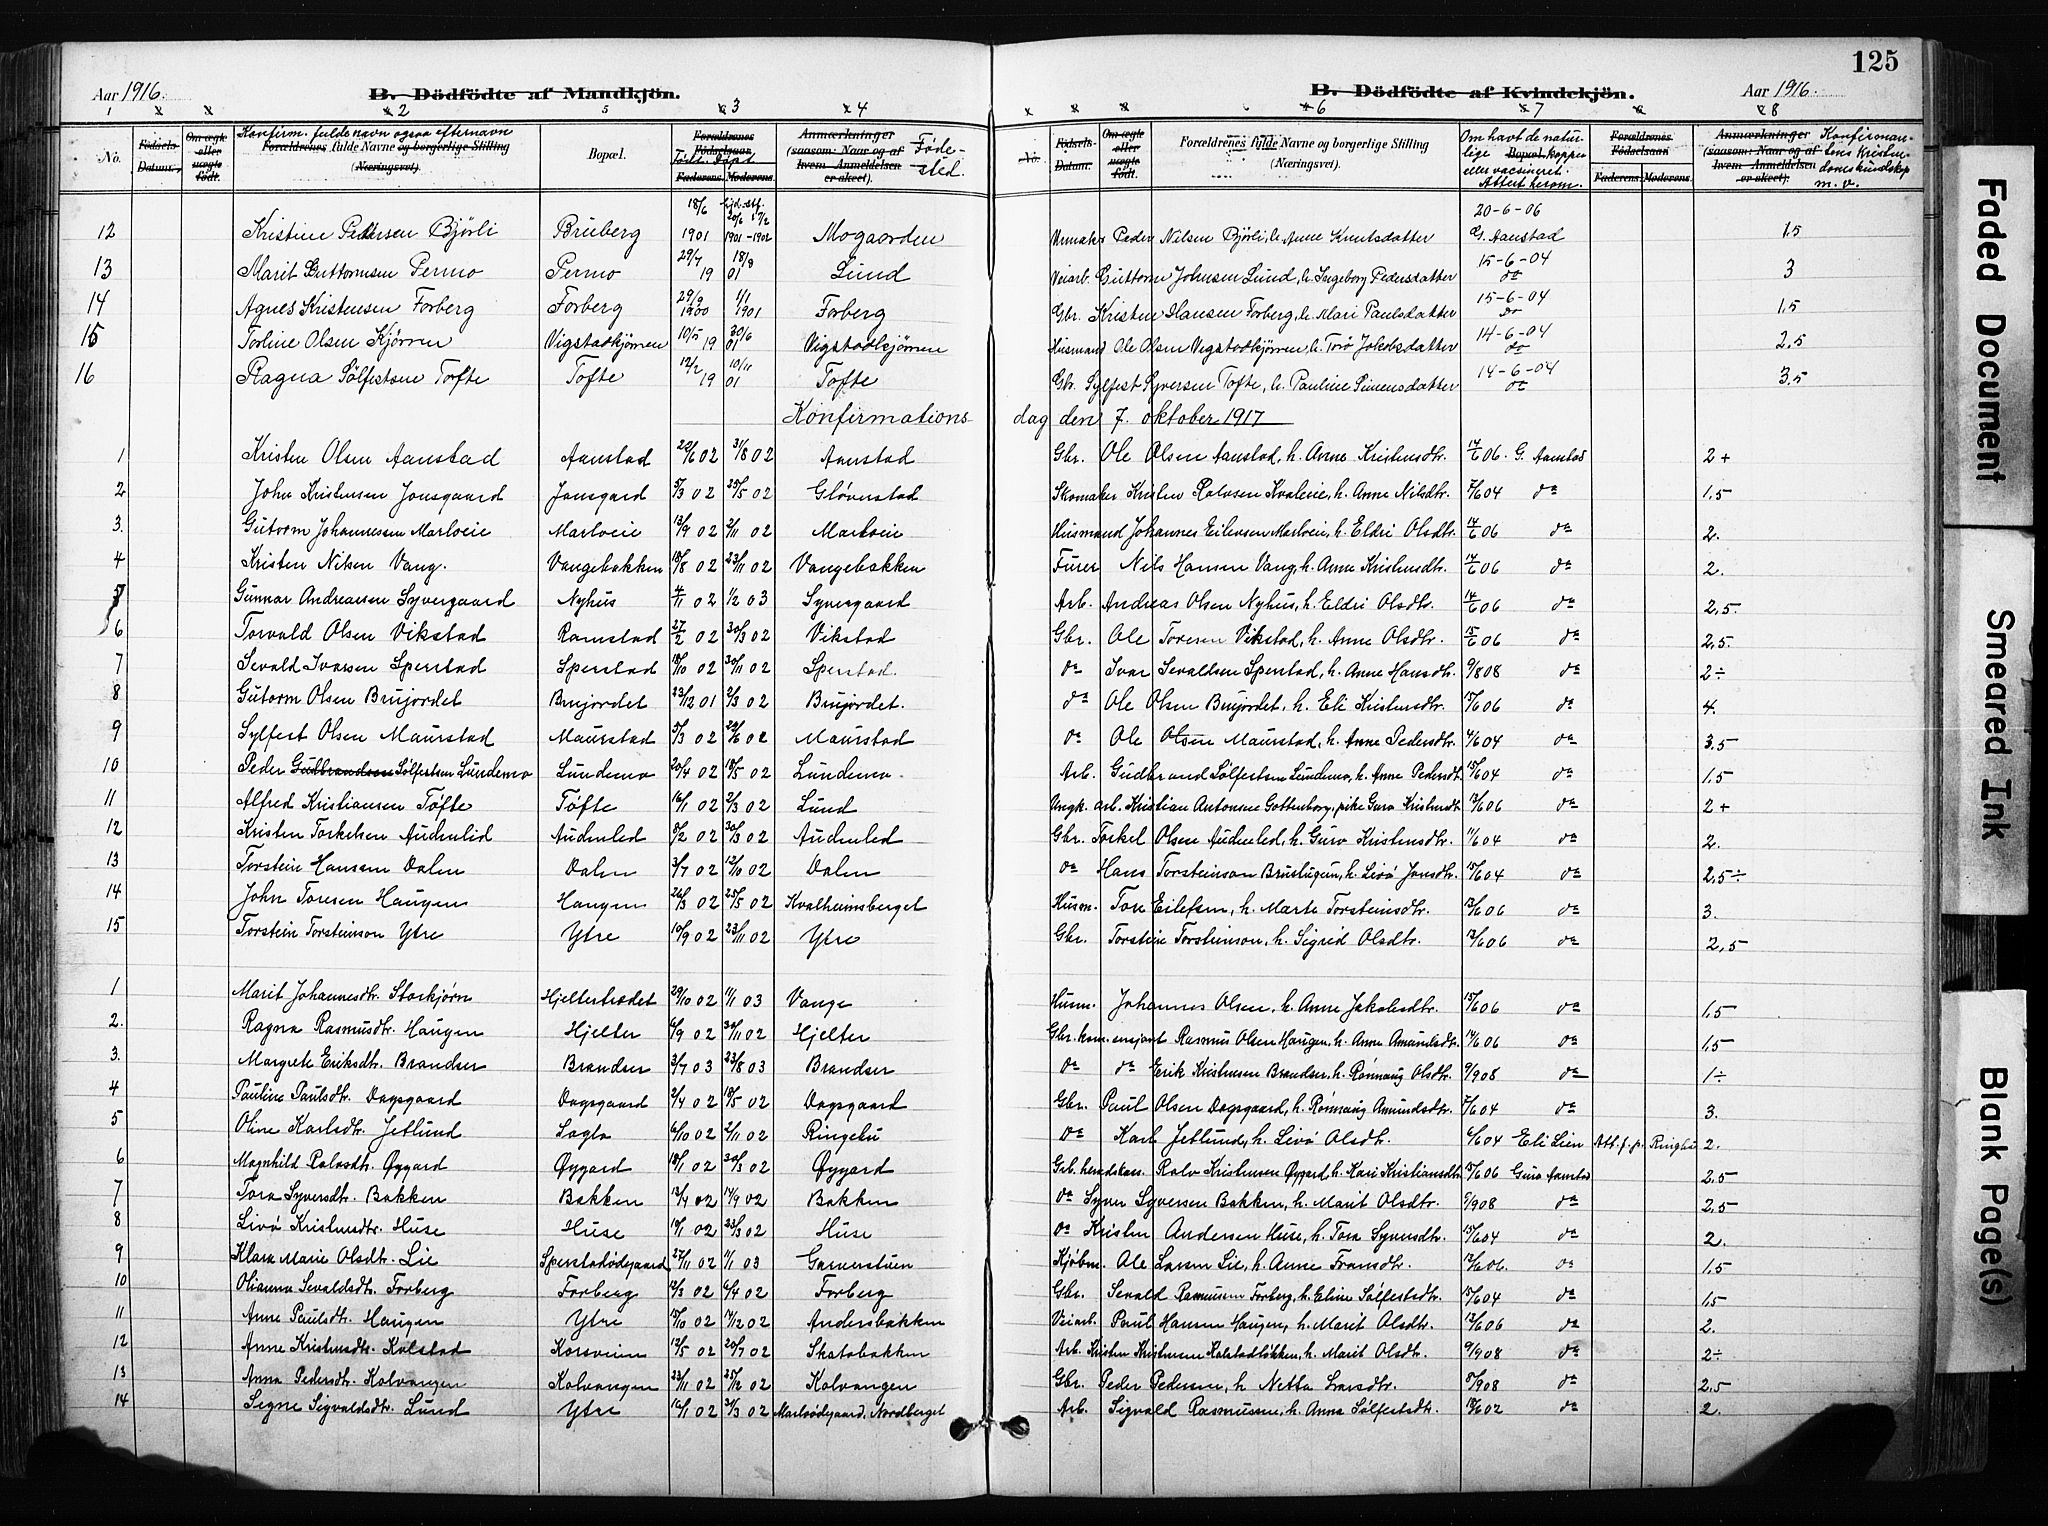 125
Aar 1916. B. Dödfödte af Mandkjön. B. Dödfödte af Kvindekjön. Aar 1916.
1 2 5 3 4 6 7 8
No. Fødsels-Datum. Om ægte eller uægte født. Konfirm. fulde navn ogsaa efternavn Forældrenes fulde Navne og borgerlige Stilling (Næringsvei). Bopæl. Forældrenes Fødselsaar Faderens. Moderens. Anmærkninger (saasom: Naar og af hvem Anmeldelsen er skeet). Fødested. No. Fødsels-Datum. Om ægte eller uægte født. Forældrenes fulde Navne og borgerlige Stilling (Næringsvei). Om havt de naturlige Bopæl. kopper eller vaccineret. Attest herom. Forældrenes Fødselsaar Faderens. Moderens. Anmærkninger (saasom: Naar og af hvem Anmeldelsen er skeet). Konfirmantens kristendomskundskap m. v.
12 Kristine Pedersen Bjørli Bruberg 18/6 1901 hjd. 20/6 1901 - stf. 17/2 1902 Mogaarden Urmaker Peder Nilsen Bjørli, h. Anne Knutsdatter 20-6-06 G. Aanstad 1,5
13 Marit Guttormsen Permo Permo 29/7 19 18/8 01 Lund Veiarb. Guttorm Johnsen Lund, h. Ingeborg Pedersdatter 15-6-04 do 3
14 Agnes Kristensen Forberg Forberg 29/9 1900 1/1 1901 Forberg Gbr. Kristen Hansen Forberg, h. Mari Paulsdatter 15-6-04 do 1,5
15 Torline Olsen Kjørren Vigstadkjørren 10/5 19 30/6 01 Vigstadkjørren Husmand Ole Olsen Vigstadkjørren, h. Torø Jakobsdatter 14-6-04 do 2,5
16 Ragna Sølfestsen Tofte Tofte 12/2 19 10/11 01 Tofte Gbr. Sylfest Syversen Tofte, h. Pauline Simensdatter 14-6-04 do 3,5
Konfirmationsdag den 7. oktober 1917
1 Kristen Olsen Aanstad Aanstad 20/6 02 31/8 02 Aanstad Gbr. Ole Olsen Aanstad, h. Anne Kristensdtr. 14/6 06. G. Aanstad 2+
2 John Kristensen Jonsgaard Jonsgard 5/3 02 25/5 02 Gløverstad Skomaker Kristen Rolvsen Kvaleie, h. Anne Nilsdtr. 7/6 04 do 1,5
3. Gutorm Johannessen Marlveie Marlveie 13/9 02 2/11 02 Marlveie Husmand Johannes Eilevsen Marlveie, h. Eldri Olsdtr. 14/6 06 do 2.
4 Kristen Nilsen Vang. Vangebakken 18/8 02 23/11 02 Vangebakken Furer Nils Hansen Vang, h. Anne Kristensdtr. 14/6 06 do 2.
5 Gunnar Andreassen Syvergaard Nyhus 4/11 02 1/2 03 Syvergaard Arb. Andreas Olsen Nyhus, h. Eldri Olsdtr. 14/6 06 do 2,5
6 Torvald Olsen Vikstad Ramstad 27/2 02 30/3 02 Vikstad Gbr. Ole Toresen Vikstad, h. Anne Olsdtr. 15/6 06 do 2,5.
7 Sevald Ivarsen Sperstad Sperstad 18/10 02 30/11 02 Sperstad. do Ivar Sevaldsen Sperstad, h. Anne Hansdtr. 9/8 08 do 2÷
8 Gutorm Olsen Brujordet Brujordet 23/12 01 2/3 02 Brujordet. do Ole Olsen Brujordet, h. Eli Kristensdtr. 15/6 06 do 4.
9 Sylfest Olsen Maurstad Maurstad 5/3 02 29/6 02 Maurstad do Ole Olsen Maurstad, h. Anne Pedersdtr. 4/6 04 do 3,5
10 Peder Gudbrandsen Sølfestsen Lundemo Lundemo 20/4 02 18/5 02 Lundemo. Arb. Gudbrand Sølfestsen Lundemo, h. Anne Pedersdt. 15/6 04 do 1,5
11 Alfred Kristiansen Tøfte Tøfte 16/1 02 2/3 02 Lund Ungk. arb. Kristian Antonsen Gottenborg, pike Guro Kristensdt. 12/6 06 do 2+
12 Kristen Torkelsen Audenlid Audenled 8/2 02 30/3 02 Audenled Gbr. Torkel Olsen Audenled, h. Guro Kristensdtr. 11/6 04 do 2.
13 Torstein Hansen Dalen Dalen 3/7 02 12/10 02 Dalen do Hans Torsteinson Brustugun, h. Livø Jonsdtr. 15/6 04 do 2,5÷
14 John Toresen Haugen Haugen 26/3 02 25/5 02 Kvalheimsberget Husm. Tore Eilefsen, h. Marte Torsteinsdtr. 12/6 06 do 3.
15 Torstein Torsteinson Ytre Ytre 10/9 02 23/11 02 Ytre Gbr. Torstein Torsteinson, h. Sigrid Olsdtr. 12/6 06 do 2,5
1 Marit Johannesdtr. Storkjørn Hjeltertrædet 29/10 02 11/1 03 Vange Husm. Johannes Olsen, h. Anne Jakobsdtr. 15/6 06 do 1,5
2. Ragna Rasmusdtr. Haugen Hjelter 6/9 02 30/11 02 Hjelter Gbr. kom. ensjant Rasmus Olsen Haugen, h. Anne Amundsdtr. 14/6 06 do 1,5
3. Margrete Eriksdtr. Brandser Brandser 3/7 03 23/8 03 Brandser do do Erik Kristensen Brandser, h. Rønnaug Olsdtr. 9/9 08 do 1÷
4 Pauline Paulsdtr. Dagsgaard Dagsgaard 2/4 02 18/5 02 Dagsgaard Gbr. Paul Olsen Dagsgaard, h. Rønnaug Amundsdtr. 7/6 04 do 3.
5 Oline Karlsdtr. Jetlund Sagla 6/10 02 2/11 02 Ringebu do Karl Jetlund, h. Livø Olsdtr. 6/6 04 Eli Lien Att. f. p. Ringbu 2.
6 Magnhild Rolvsdtr. Øygard Øygard 18/1 02 30/3 02 Øygard Grb. herredskas. Rolv Kristensen Øygard, h. Kari Kristiansdtr. 15/6 06 Guro Aanstad 2,5
7 Tora Syversdtr. Bakken Bakken 12/7 02 14/9 02 Bakken do Syver Syversen Bakken, h. Marit Olsdtr. 9/9 08 do 2,5
8 Livø Kristensdtr. Huse Huse 19/1 02 23/3 02 Huse do Kristen Andersen Huse, h. Tora Syversdtr. 15/6 04 do 2.
9 Klara Marie Olsdt. Lie Sperstadødegaard 27/11 02 11/1 03 Garverstuen Kjøbm. Ole Larsen Lie, h. Anne Fransdtr. 12/6 06. do 1,5
10 Olianna Sevaldsdtr. Forberg Forberg 12/3 02 6/4 02 Forberg Gbr. Sevald Rasmussen Forberg, h. Eline Sølfestsdtr. 15/6 04 do 1,5
11 Anne Paulsdtr. Haugen Ytre 15/10 02 14/12 02 Andersbakken Veiarb. Paul Hansen Haugen, h. Marit Olsdtr. 12/6 06 do 2.
12 Anne Kristensdtr. Kolstad Korsveien 12/5 02 20/7 02 Skatabakken Arb. Kristen Kristensen Kolstadløkken, h. Marit Olsdtr. 9/9 08 do 2÷
13 Anna Pedersdtr. Kolvangen Kolvangen 23/11 02 25/12 02 Kolvangen Gbr. Peder Pedersen, h. Netta Larsdtr. 8/9 08 do 2,5
14 Signe Sigvaldsdtr. Lund Ytre 16/1 02 31/3 02 Marloødegaard, Nordberget Arb. Sigvald Rasmussen, h. Anna Sølfestsdtr. 18/6 02 do 2.
Faded Document
Smeared Ink
Blank Page(s)